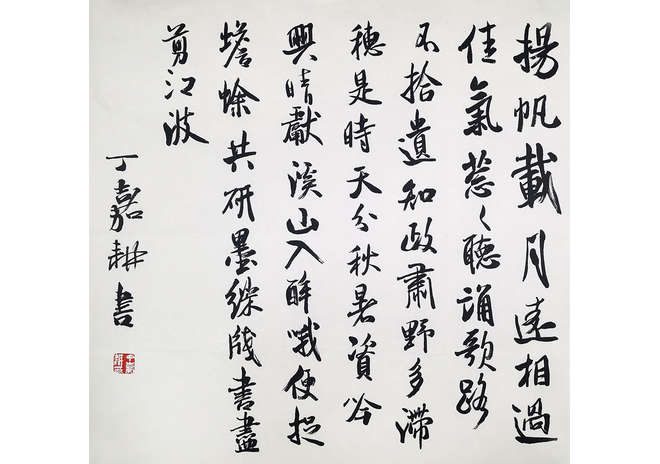 揚帆載月遠相過
佳氣葱々聽誦歌路
不拾遺知政肅野多滯
穗是時天分秋暑資吟
興晴獻溪山入醉哦便捉
蟾蜍共研墨綵牋書盡
剪江波
丁嘉耕書